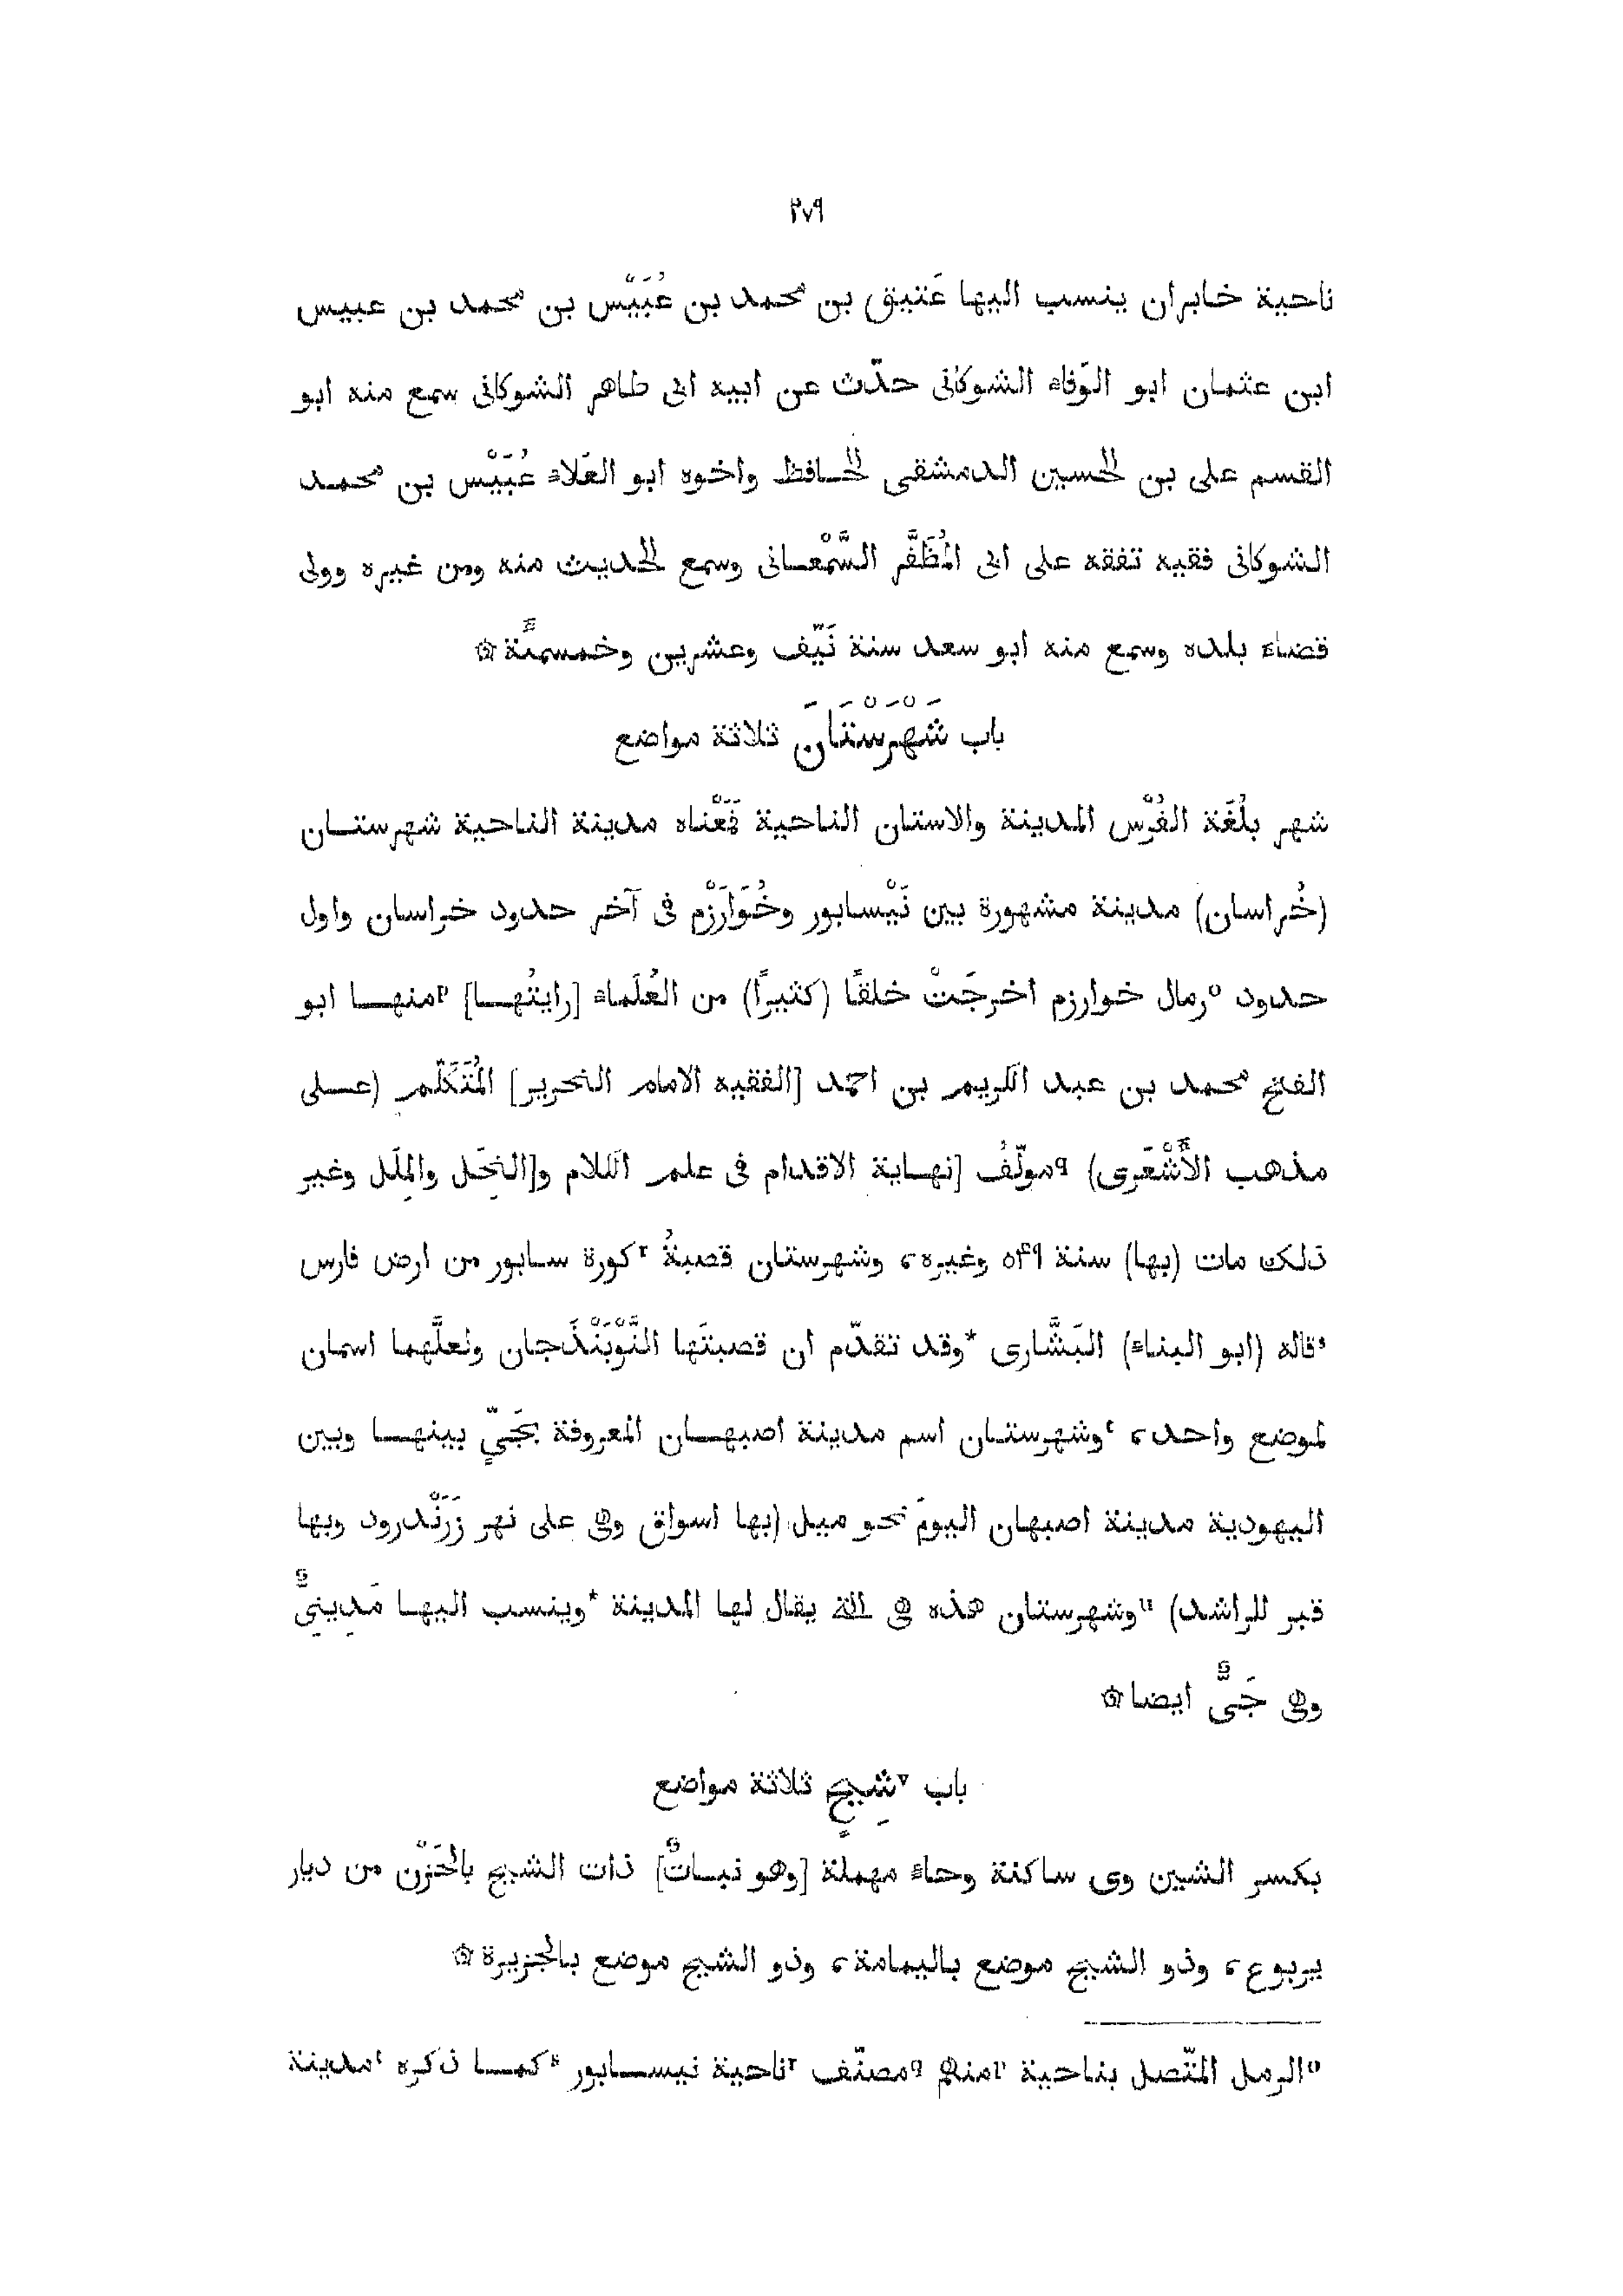 ٢٧٩
ناحية خابران ينسب اليها عَتيق بن محمد بن عُبَيْس بن محمد بن عبيس
ابن عثمان ابو الوَفاء الشوكانى حدّث عن ابيه ابى طاهر الشوكانى سمع منه ابو
القسم على بن الحسين الدمشقى الحافظ واخوه ابو العَلاء عُبَيْس بن محمد
الشوكانى فقيه تفقه على ابى المُظَفَّر السَّمْعانى وسمع الحديث منه ومن غيره وولى
قضاء بلده وسمع منه ابو سعد سنة نَيّف وعشرين وخمسمئة ۞
باب شَهْرَسْتَانَ ثلاثة مواضع
شهر بلُغَة الفُرْس المدينة والاستان الناحية فَمَعْناه مدينة الناحية شهرستان
(خُراسان) مدينة مشهورة بين نَيْسابور وخُوَارَزْم فى آخر حدود خراسان واول
حدود °رمال خوارزم اخرجَتْ خلقًا (كثيرًا) من العُلَماء [رايتُها] "منها ابو
الفتح محمد بن عبد الكريم بن احمد [الفقيه الامام النحرير] المُتَكَلّم (على
مذهب الأَشْعَرِى) ٩مولّفُ [نهاية الاقدام فى علم الكلام و[النِحَل والمِلَل وغير
ذلك مات (بها) سنة ٥۴٩ وغيره، وشهرستان قصبةُ ٢كورة سابور من ارض فارس
ءقاله (ابو البناء) البَشَّارى *وقد تقدّم ان قصبتَها النَّوْبَنْذَجان ولعلَّهما اسمان
لموضع واحد، ءوشهرستان اسم مدينة اصبهان المعروفة بجَىٍّ بينها وبين
اليهودية مدينة اصبهان اليومَ نحو ميل (بها اسواق وهى على نهر زَرَنْدرود وبها
قبر للراشد) "وشهرستان هذه هى التى يقال لها المدينة *وينسب اليها مَدِينِىٌّ
وهى جَىٌّ ايضا ۞
باب ٧شِيحٍ ثلاثة مواضع
بكسر الشين وى ساكنة وحاء مهملة [وهو نباتٌ] ذات الشيح بالحَزْن من ديار
يربوع، وذو الشيح موضع باليمامة، وذو الشيح موضع بالجزيرة ۞
°الرمل المتّصل بناحية "منهم ٩مصنّف ٢ناحية نيسابور ءكما ذكره ءمدينة